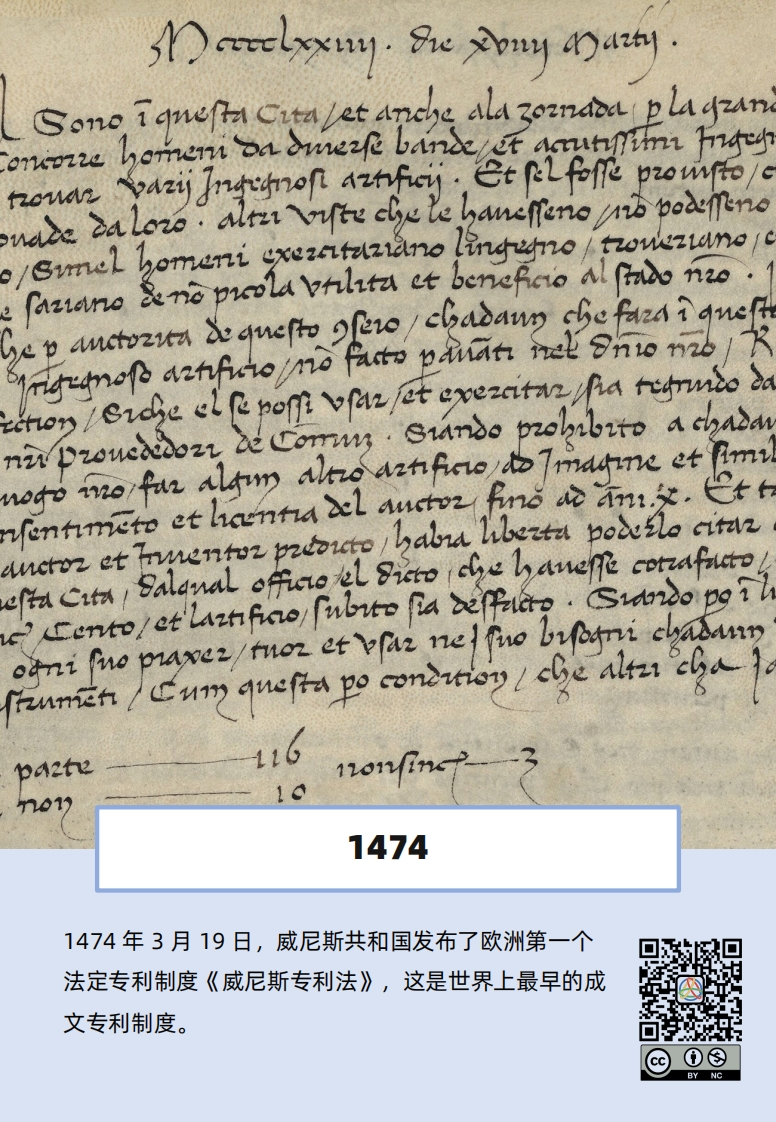 Mcccclxxiiij. die xviiij Martij.
Sono ī questa Cita / et anche ala zornada, p la grand
Concorre homeni da diuerse bande / et acutissimi Ingegn
trouar varij Ingegnosi artificij. Et sel fosse prouisto /
ouade da loro. altri viste che le hauesseno / nō podesseno
o / Simel homeni exercitariano lingegno / troueriano /
e sariano de nō picola vtilita et beneficio al stado nrō.
he p auctorita de questo 9seio / chadaun che fara ī quest
Ingegnoso artificio / nō facto p auāti nel dnio nrō /
fection / Siche el se possi vsar / et exercitar / sia tegnudo da
nrī Prouededori de Comun. Siando prohibito a chadau
luogo nrō / far algun altro artificio / ad Imagine et simil
nsentimēto et licentia del auctor / fino ad āni .x. Et
auctor et Inuentor predicto / habia liberta poderlo citar
uesta Cita / dalqual officio / el dicto / che hauesse cōtrafacto /
Cento / et lartificio / subito sia desfacto. Siando po ī
ogni suo piaxer / tuor et vsar nei suo bisogni chadaun
strumēti / Cum questa po condition / che altri cha
parte 116 nonsinc 3
non 10
1474
1474 年 3 月 19 日，威尼斯共和国发布了欧洲第一个
法定专利制度《威尼斯专利法》，这是世界上最早的成
文专利制度。
cc BY NC